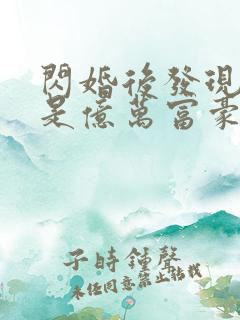 閃婚後發現
是億萬富豪
子時鍾聲
未经同意禁止转载